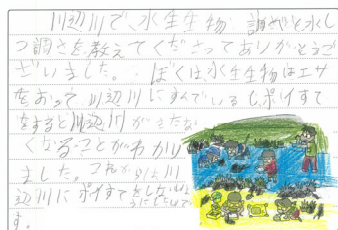 川辺川で、水生生物調さと水し
つ調さを教えてくださってありがとうご
ざいました。ぼくは水生生物はエサ
をおって川辺川にすんでいるしポイすて
をすると川辺川がきたな
くなることがわかり
ました。これからは川
辺川にポイすてをしないよ
うにしたいで
す。